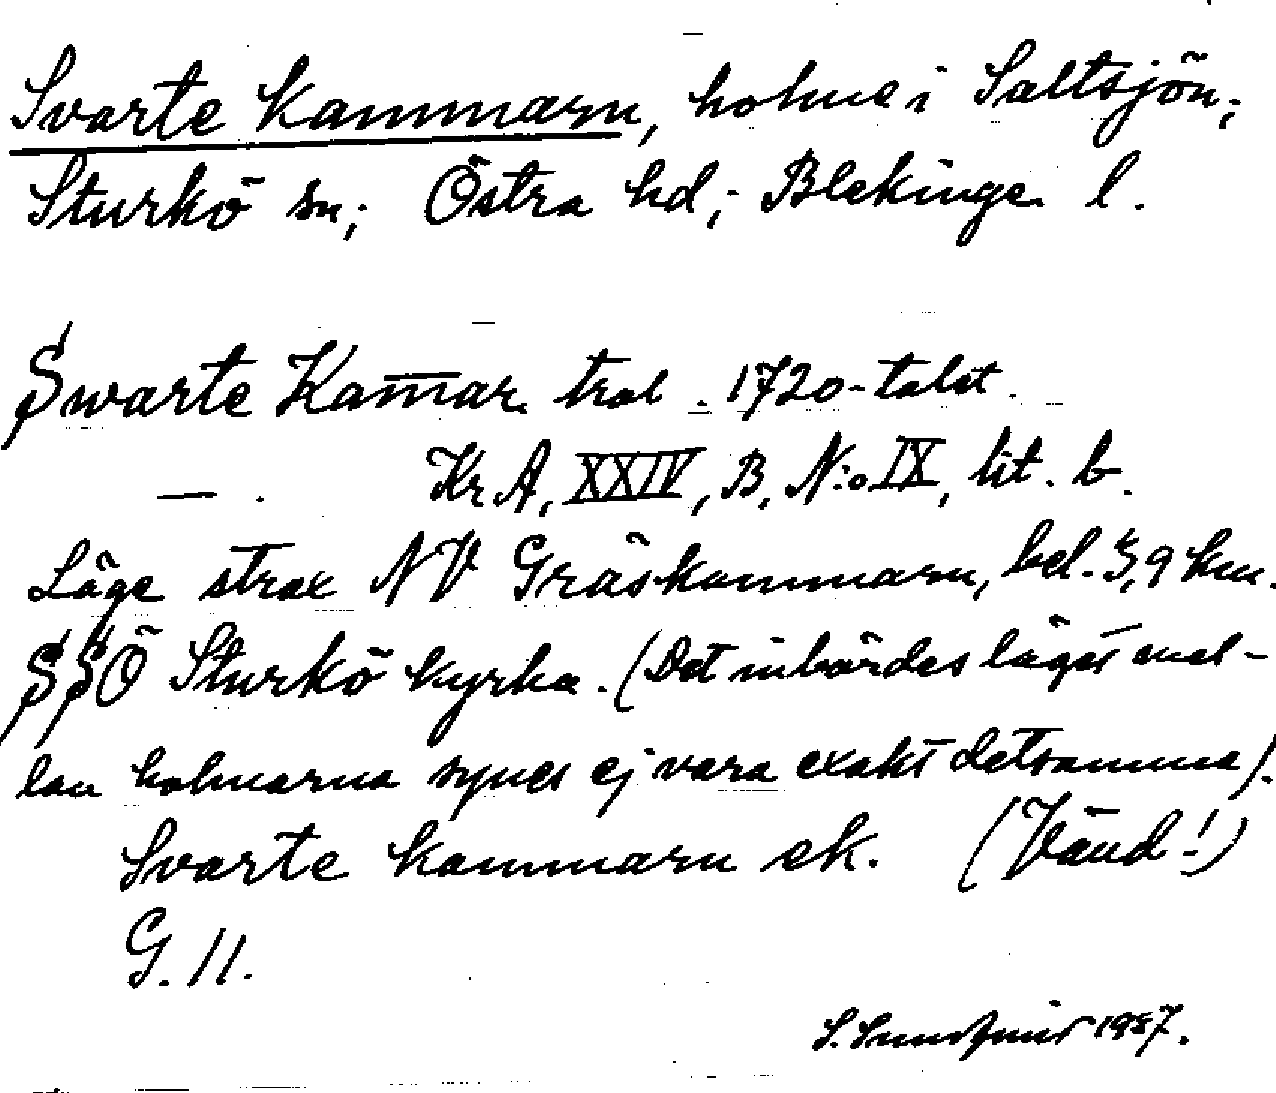 Svarte kammarn, holme i Saltsjön;
Sturkö sn; Östra hd; Blekinge l.
Swarte Kam̅ar trol. 1720-talet.
—. KrA, XXIV, B, N:o IX, lit. b.
Läge strax NV Gräskammarn, bel. 3,9 km.
SSÖ Sturkö kyrka. (Det inbördes läget mel-
lan holmarna synes ej vara exakt detsamma).
Svarte kammarn ek. (Vänd!)
G. 11.
S. 1987.